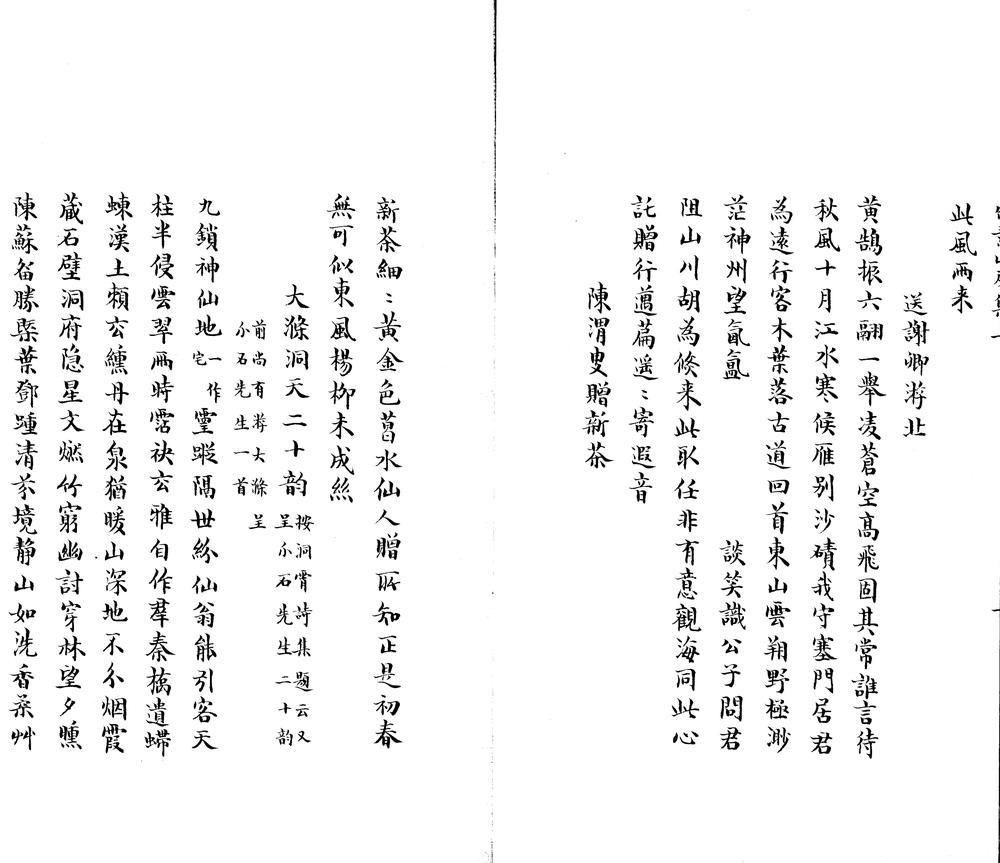 此風而来
送謝卿游北
黄鵠振六翮一舉凌蒼空高飛固其常誰言待
秋風十月江水寒候雁别沙磧我守塞門居君
為遠行客木葉落古道回首東山雲朔野極渺
茫神州望氤氲　談笑識公子問君
阻山川胡為倏来此耿任非有意觀海同此心
託贈行邁篇遥〻寄遐音
陳渭叟贈新茶
新茶細〻黄金色葛水仙人贈所知正是初春
無可似東風楊栁未成絲
大滌洞天二十韵按洞霄詩集題云又呈尒石先生二十韵
前尚有游大滌呈尒石先生一首
九鎖神仙地一作宅靈蹤隔世紛仙翁能引客天
柱半侵雲翠雨時霑袂玄雅自作羣秦檎遺
蝀漢土頼玄纁丹在泉猶暖山深地不尒烟霞
蔵石壁洞府隐星文燃竹窮幽討穿林望夕曛
陳蘇畱勝槩葉鄧踵清芬境静山如洗香柔艸